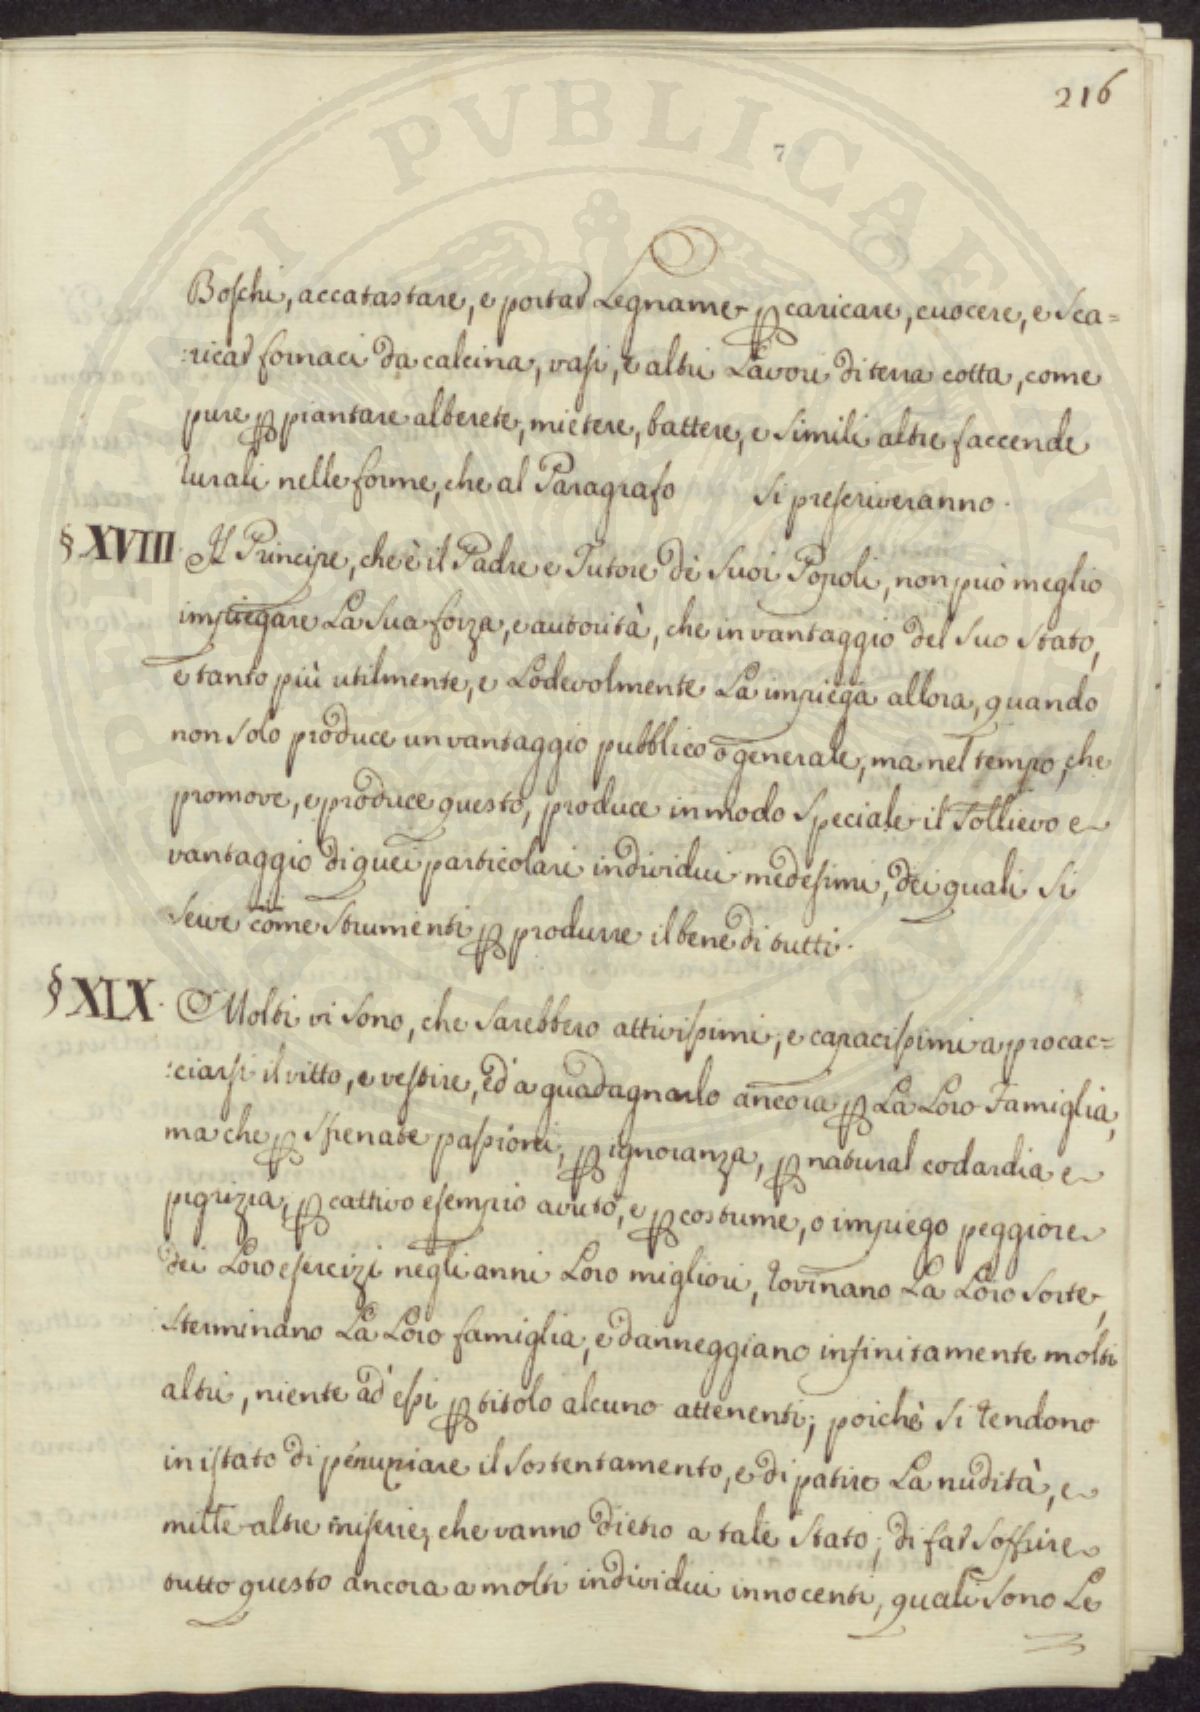 216
7
Boschi, accatastare, e portar Legname p caricare, cuocere, e Sca=
:ricar fornaci da calcina, vasi, e altri Lavori di terra cotta, come
pure p piantare alberete, mietere, battere, e Simili altre faccende
rurali nelle forme, che al Paragrafo Si prescriveranno.
§ XVIII. Il Principe, che è il Padre e Tutore de Suoi Popoli, non può meglio
impiegare La Sua forza, e autorità, che in vantaggio del Suo Stato,
e tanto più utilmente, e Lodevolmente La impiega allora, quando
non Solo produce un vantaggio pubblico o generale, ma nel tempo, che
promove, e produce questo, produce in modo Speciale il Sollievo e
vantaggio di quei particolari individui medesimi, dei quali Si
Serve come Strumenti p produrre il bene di tutti.
§ XIX. Molti vi Sono, che Sarebbero attivissimi, e capacissimi a procac=
:ciarsi il vitto, e vestire, ed a guadagnarlo ancora p La Loro Famiglia,
ma che p Sfrenate passioni, p ignoranza, p natural codardia e
pigrizia, p cattivo esempio avuto, e p costume, o impiego peggiore
dei Loro esercizi negli anni Loro migliori, rovinano La Loro Sorte,
Sterminano La Loro famiglia, e danneggiano infinitamente molti
altri, niente ad essi p titolo alcuno attenenti; poichè Si rendono
in istato di penuriare il Sostentamento, e di patire La nudità, e
mille altre miserie, che vanno dietro a tale Stato; di far Soffrire
tutto questo ancora a molti individui innocenti, quali Sono Le
PERUSI PUBLICAE